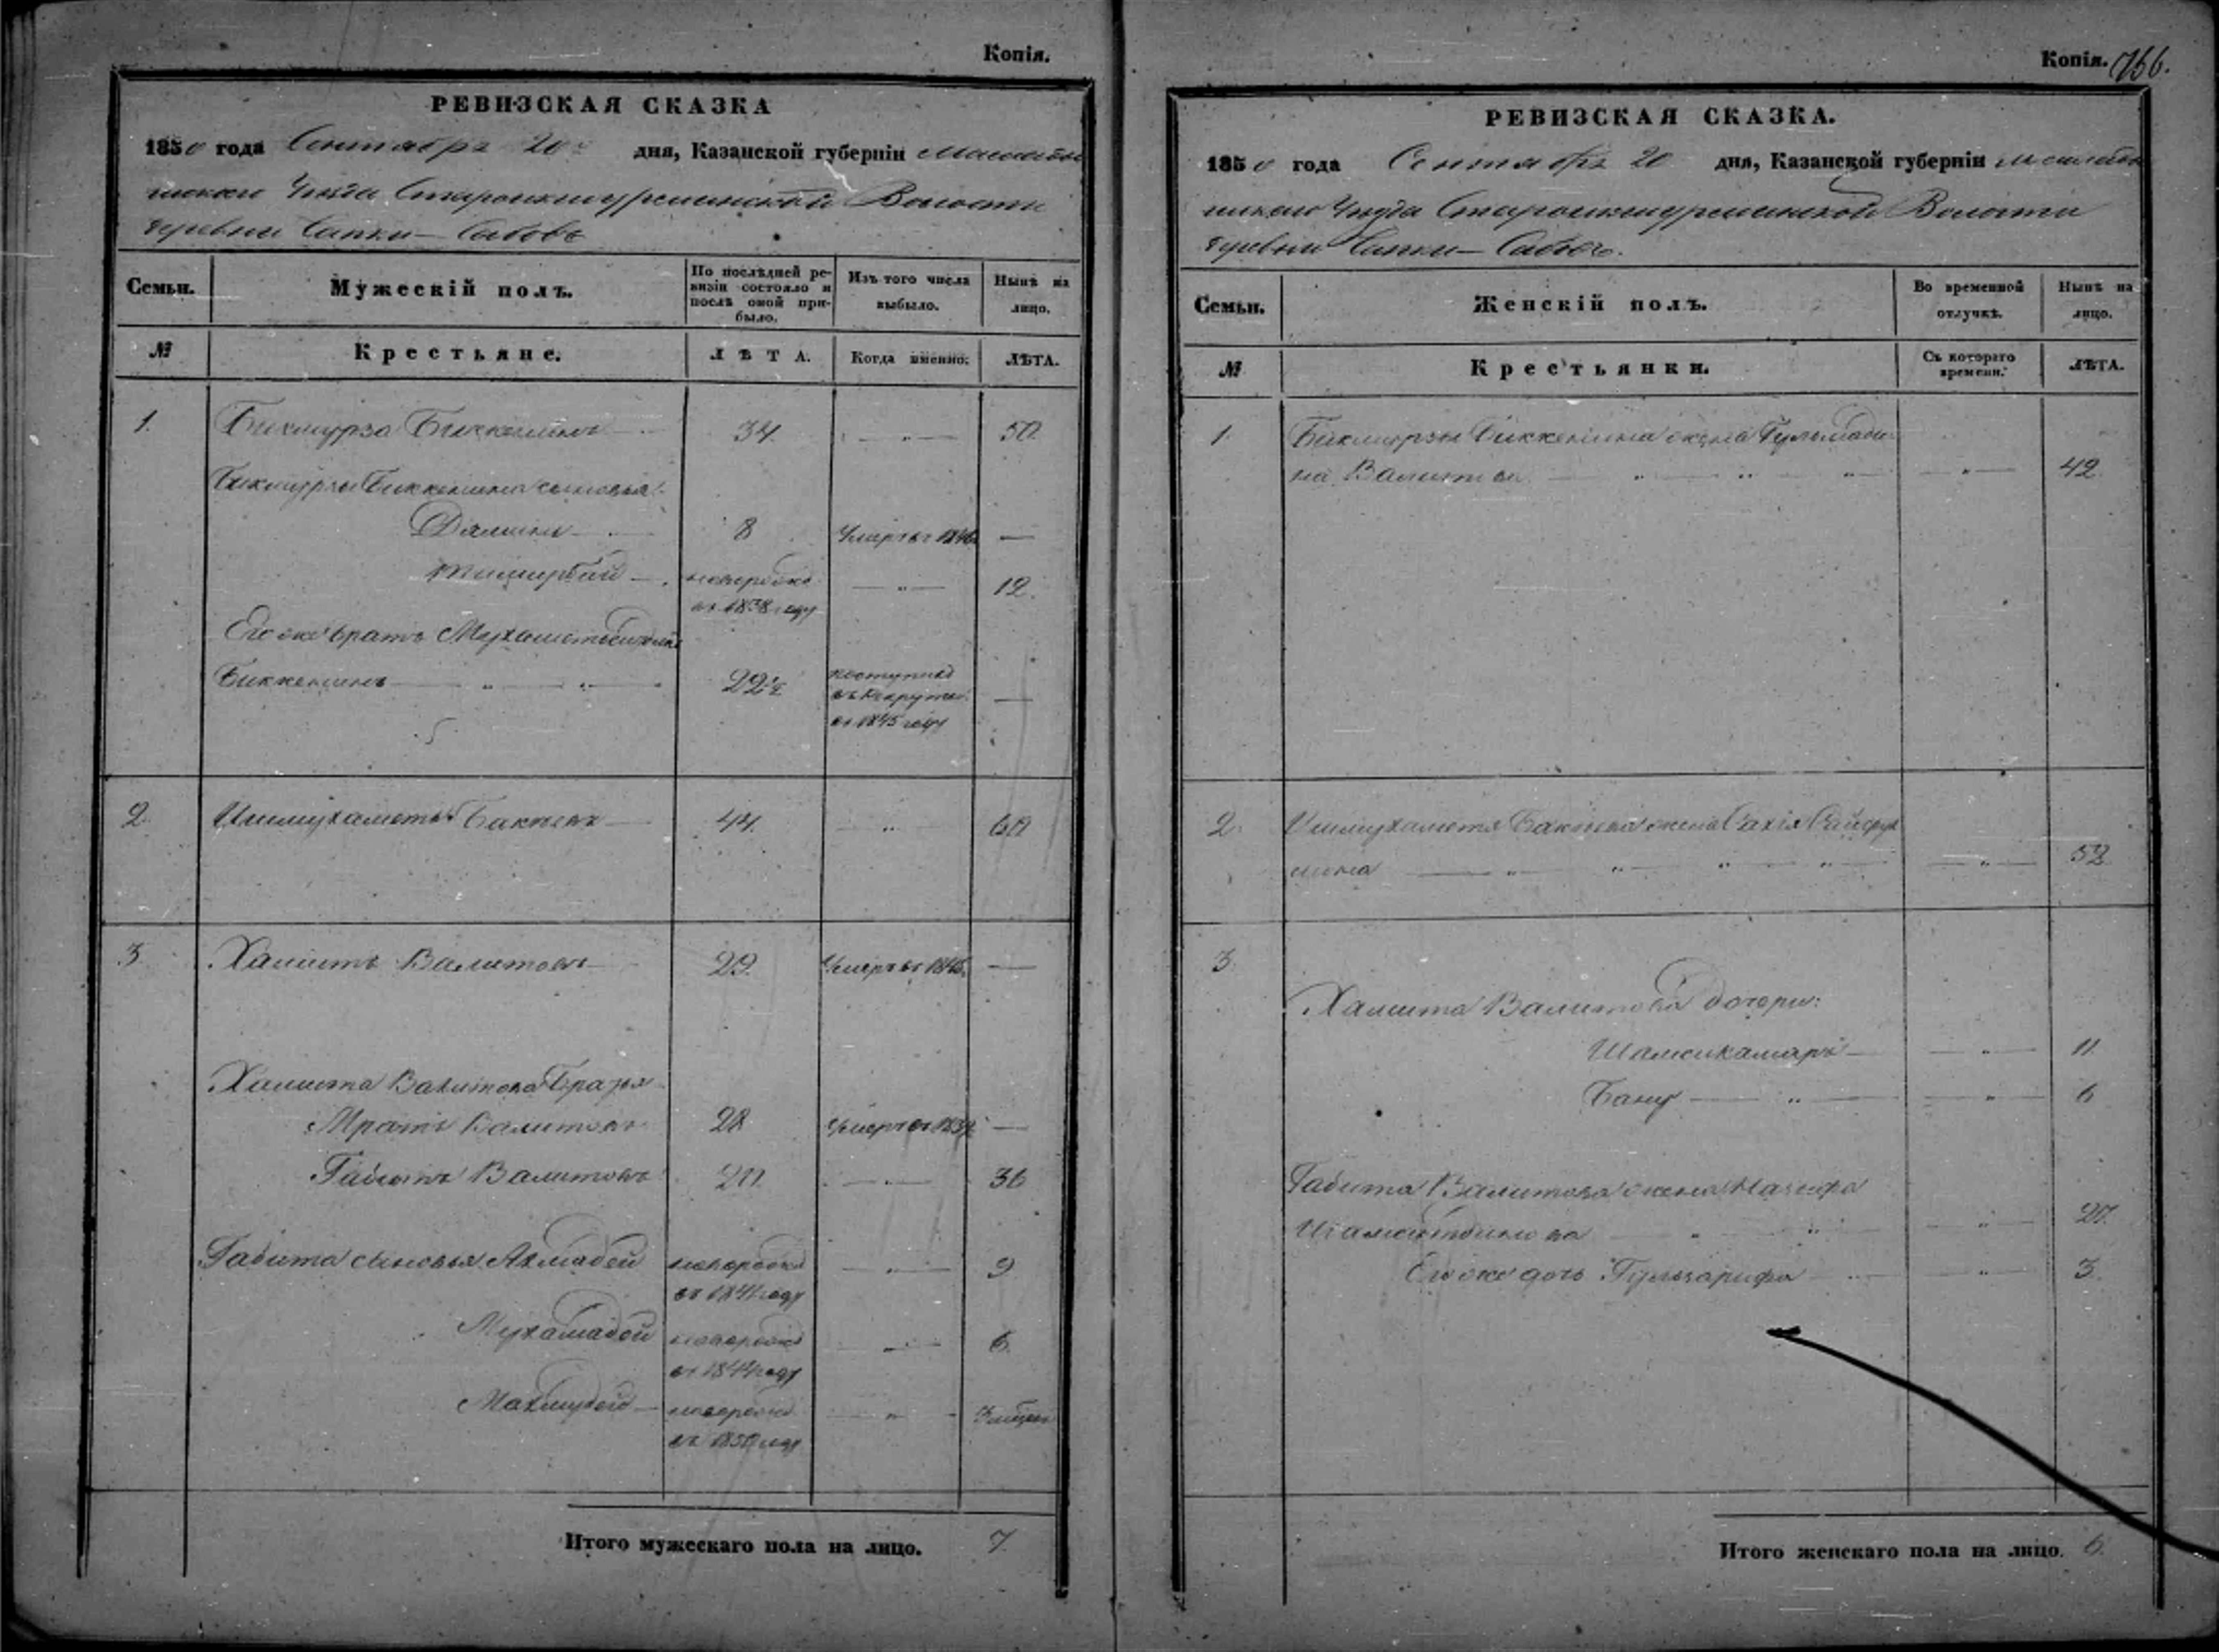 Копія.
РЕВИЗСКАЯ СКАЗКА
1850 года Сентября 20 дня, Казанской губерніи Мамадыш
скаго Уѣзда Староикшурминской Волости
деревни Сапки-Сабовъ
Семьи.
Мужескій полъ.
По послѣдней ре-
визіи состояло и
послѣ оной при-
было.
Изъ того числа
выбыло.
Нынѣ на
лицо.
№
Крестьяне.
ЛѢТА.
Когда именно.
ЛѢТА.
1. Бикмурза Биккенинъ 34. — " — 50.
Бикмурзы Биккенина сыновья:
8 Умеръ въ —
Тимирбай — новорожд — " — 12.
въ 1838 году
Его же братъ
Биккенинъ — " — " — 22½ поступилъ
въ рекруты —
въ 1845 году
2. Ишмухаметъ Бакѣевъ 44. — " — 60
3 Хамитъ Валитовъ 29. Умеръ въ —
Хамита Валитова Братья
Мратъ Валитовъ 28 Умеръ въ —
Габитъ Валитовъ 20. — " — 36
Габита сыновья Ахмадей новорожд — " — 9
въ 1841 году
Мухамадей новорожд — " — 6.
въ 1844 году
новорожд — " — 3 мѣсяц
въ 1850 году
Итого мужескаго пола на лицо. 7.
Копія. 766.
РЕВИЗСКАЯ СКАЗКА.
1850 года Сентября 20 дня, Казанской губерніи Мамадыш
скаго Уѣзда Староикшурминской Волости
деревни Сапки-Сабовъ.
Семьи.
Женскій полъ.
Во временной
отлучкѣ.
Нынѣ на
лицо.
№
Крестьянки.
Съ котораго
времени.
ЛѢТА.
1. Бикмурзы Биккенина жена
на Валитова — " — " — " — " — 42.
2. Ишмухаметя Бакѣева жена Сахія Сайфул
лина — " — " — " — " — 52
3.
Хамита Валитова дочери:
Шамсикамаръ — " — 11.
Бану — " — " — 6
Габита Валитова жена Назифа
Шамсутдинова — " — " — " — 27.
Ево же дочь Гульзарифа — " — 3.
Итого женскаго пола на лицо. 6.